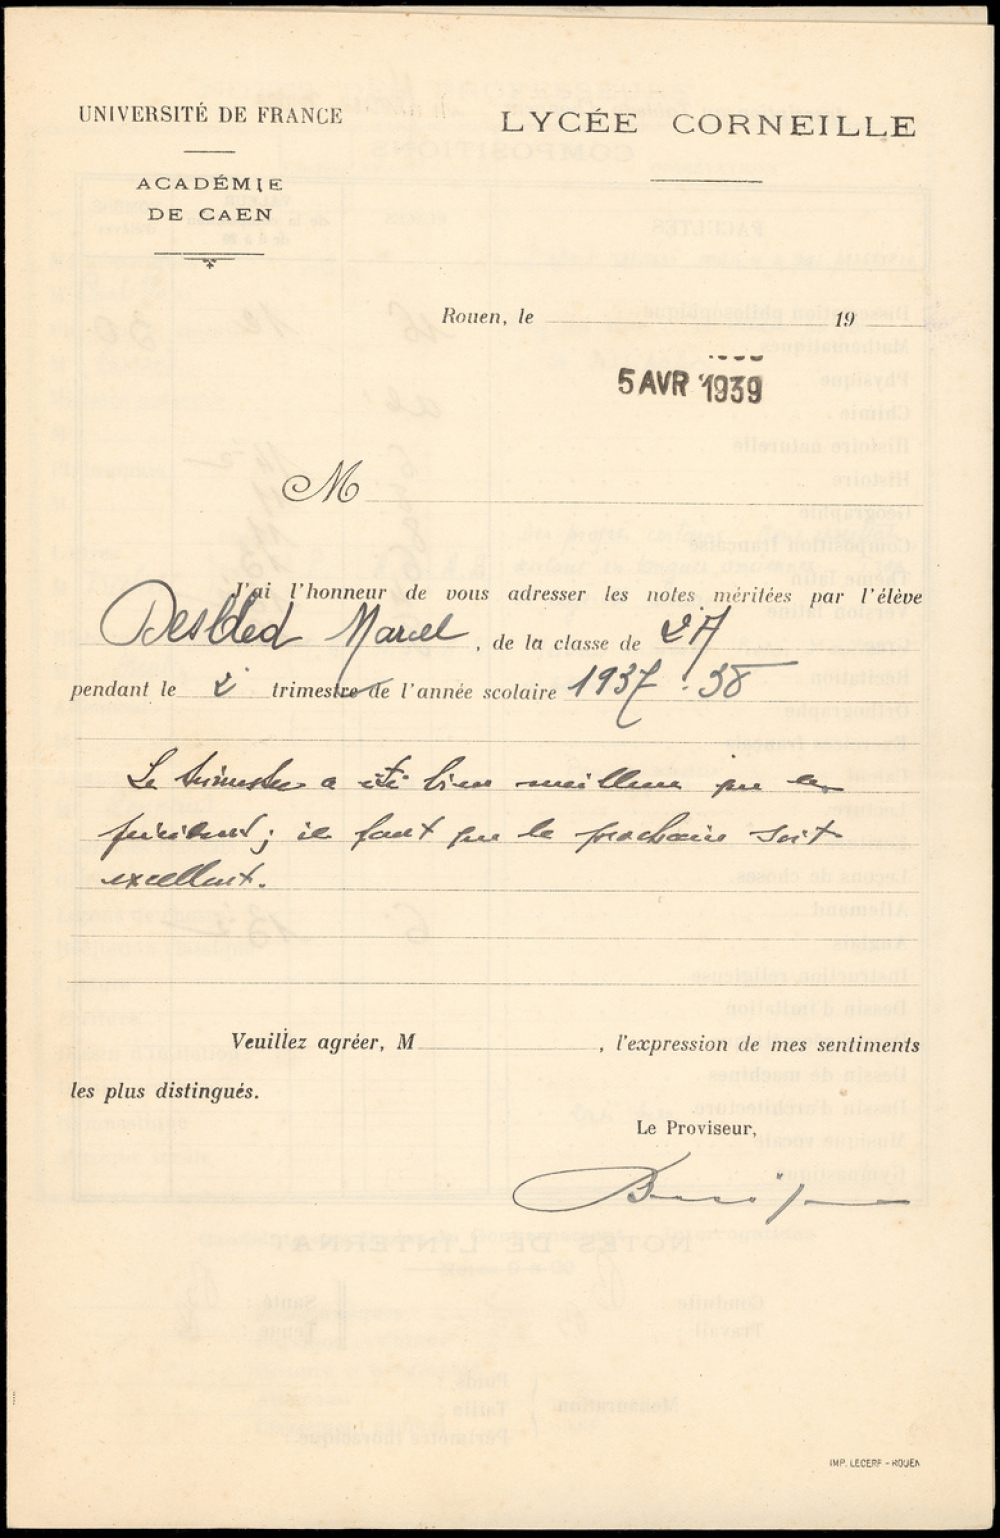 UNIVERSITÉ DE FRANCE
ACADÉMIE
DE CAEN
LYCÉE CORNEILLE
Rouen, le 19
5 AVR 1939
M
J'ai l'honneur de vous adresser les notes méritées par l'élève
Marcel, de la classe de 2 A
pendant le 2 trimestre de l'année scolaire 1937-38
Le trimestre a été bien meilleur que le
précédent; il faut que le prochain soit
excellent.
Veuillez agréer, M , l'expression de mes sentiments
les plus distingués.
Le Proviseur,
IMP. LECERF - ROUEN